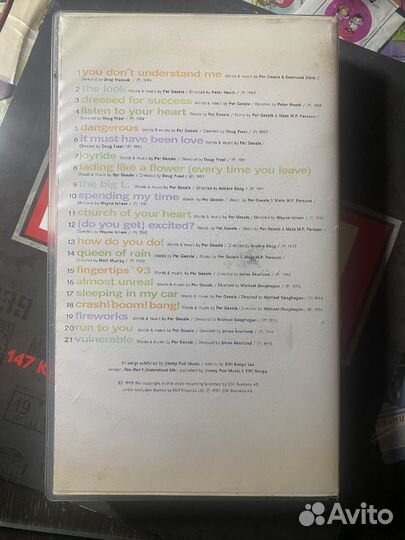 1 you don't understand me Words & music by Per Gessle & Desmond Child /
Directed by Greg Masuak / (P) 1995
2 the look Words & music by Per Gessle / Directed by Peter Heath / (P) 1989
3 dressed for success Words & music by Per Gessle / Directed by Peter Heath / (P) 1989
4 listen to your heart Words by Per Gessle / Music by Per Gessle & Mats M.P. Persson /
Directed by Doug Freel / (P) 1989
5 dangerous Words & music by Per Gessle / Directed by Doug Freel / (P) 1989
6 it must have been love Words & music by Per Gessle /
Directed by Doug Freel / (P) 1990
7 joyride Words & music by Per Gessle / Directed by Doug Freel / (P) 1991
8 fading like a flower (every time you leave)
Words & music by Per Gessle / Directed by Doug Freel / (P) 1991
9 the big L. Words & music by Per Gessle / Directed by Anders Skog / (P) 1991
10 spending my time Words by Per Gessle / Music by Per Gessle & Mats M.P. Persson /
Directed by Wayne Isham / (P) 1991
11 church of your heart Words & music by Per Gessle / Directed by Wayne Isham /
12 (do you get) excited? Words by Per Gessle / Music by Per Gessle & Mats M.P. Persson /
Directed by Wayne Isham / (P) 1992
13 how do you do! Words & music by Per Gessle / Directed by Anders Skog / (P) 1992
14 queen of rain Words by Per Gessle / Music by Per Gessle & Mats M.P. Persson /
Directed by Matt Murray / (P) 1992
15 fingertips '93 Words & music by Per Gessle / Directed by Jonas Åkerlund / (P) 1993
16 almost unreal Words & music by Per Gessle / Directed by Michael Geoghegan / (P) 1993
17 sleeping in my car Words & music by Per Gessle / Directed by Michael Geoghegan / (P) 1994
18 crash! boom! bang! Words & music by Per Gessle / Directed by Michael Geoghegan / (P) 1994
19 fireworks Words & music by Per Gessle / Directed by Michael Geoghegan / (P) 1994
20 run to you Words & music by Per Gessle / Directed by Jonas Åkerlund / (P) 1994
21 vulnerable Words & music by Per Gessle / Directed by Jonas Åkerlund / (P) 1995
All songs published by Jimmy Fun Music / Admin. by EMI Songs Ltd.
except «You Don't Understand Me» published by Jimmy Fun Music & EMI Songs
© 1995 the copyright in this video recording is owned by EMI Svenska AB
under exclusive licence by EMI Records Ltd. (P) 1995 EMI Svenska AB
147 K
19
Avito